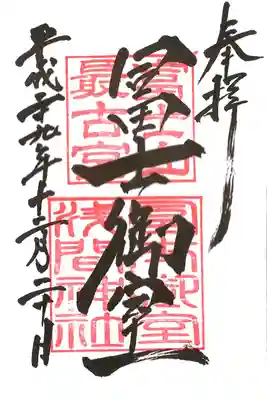 奉拝
富士山
最古宮
冨士御室
冨士御室
浅間神社
平成二十九年十二月二十日